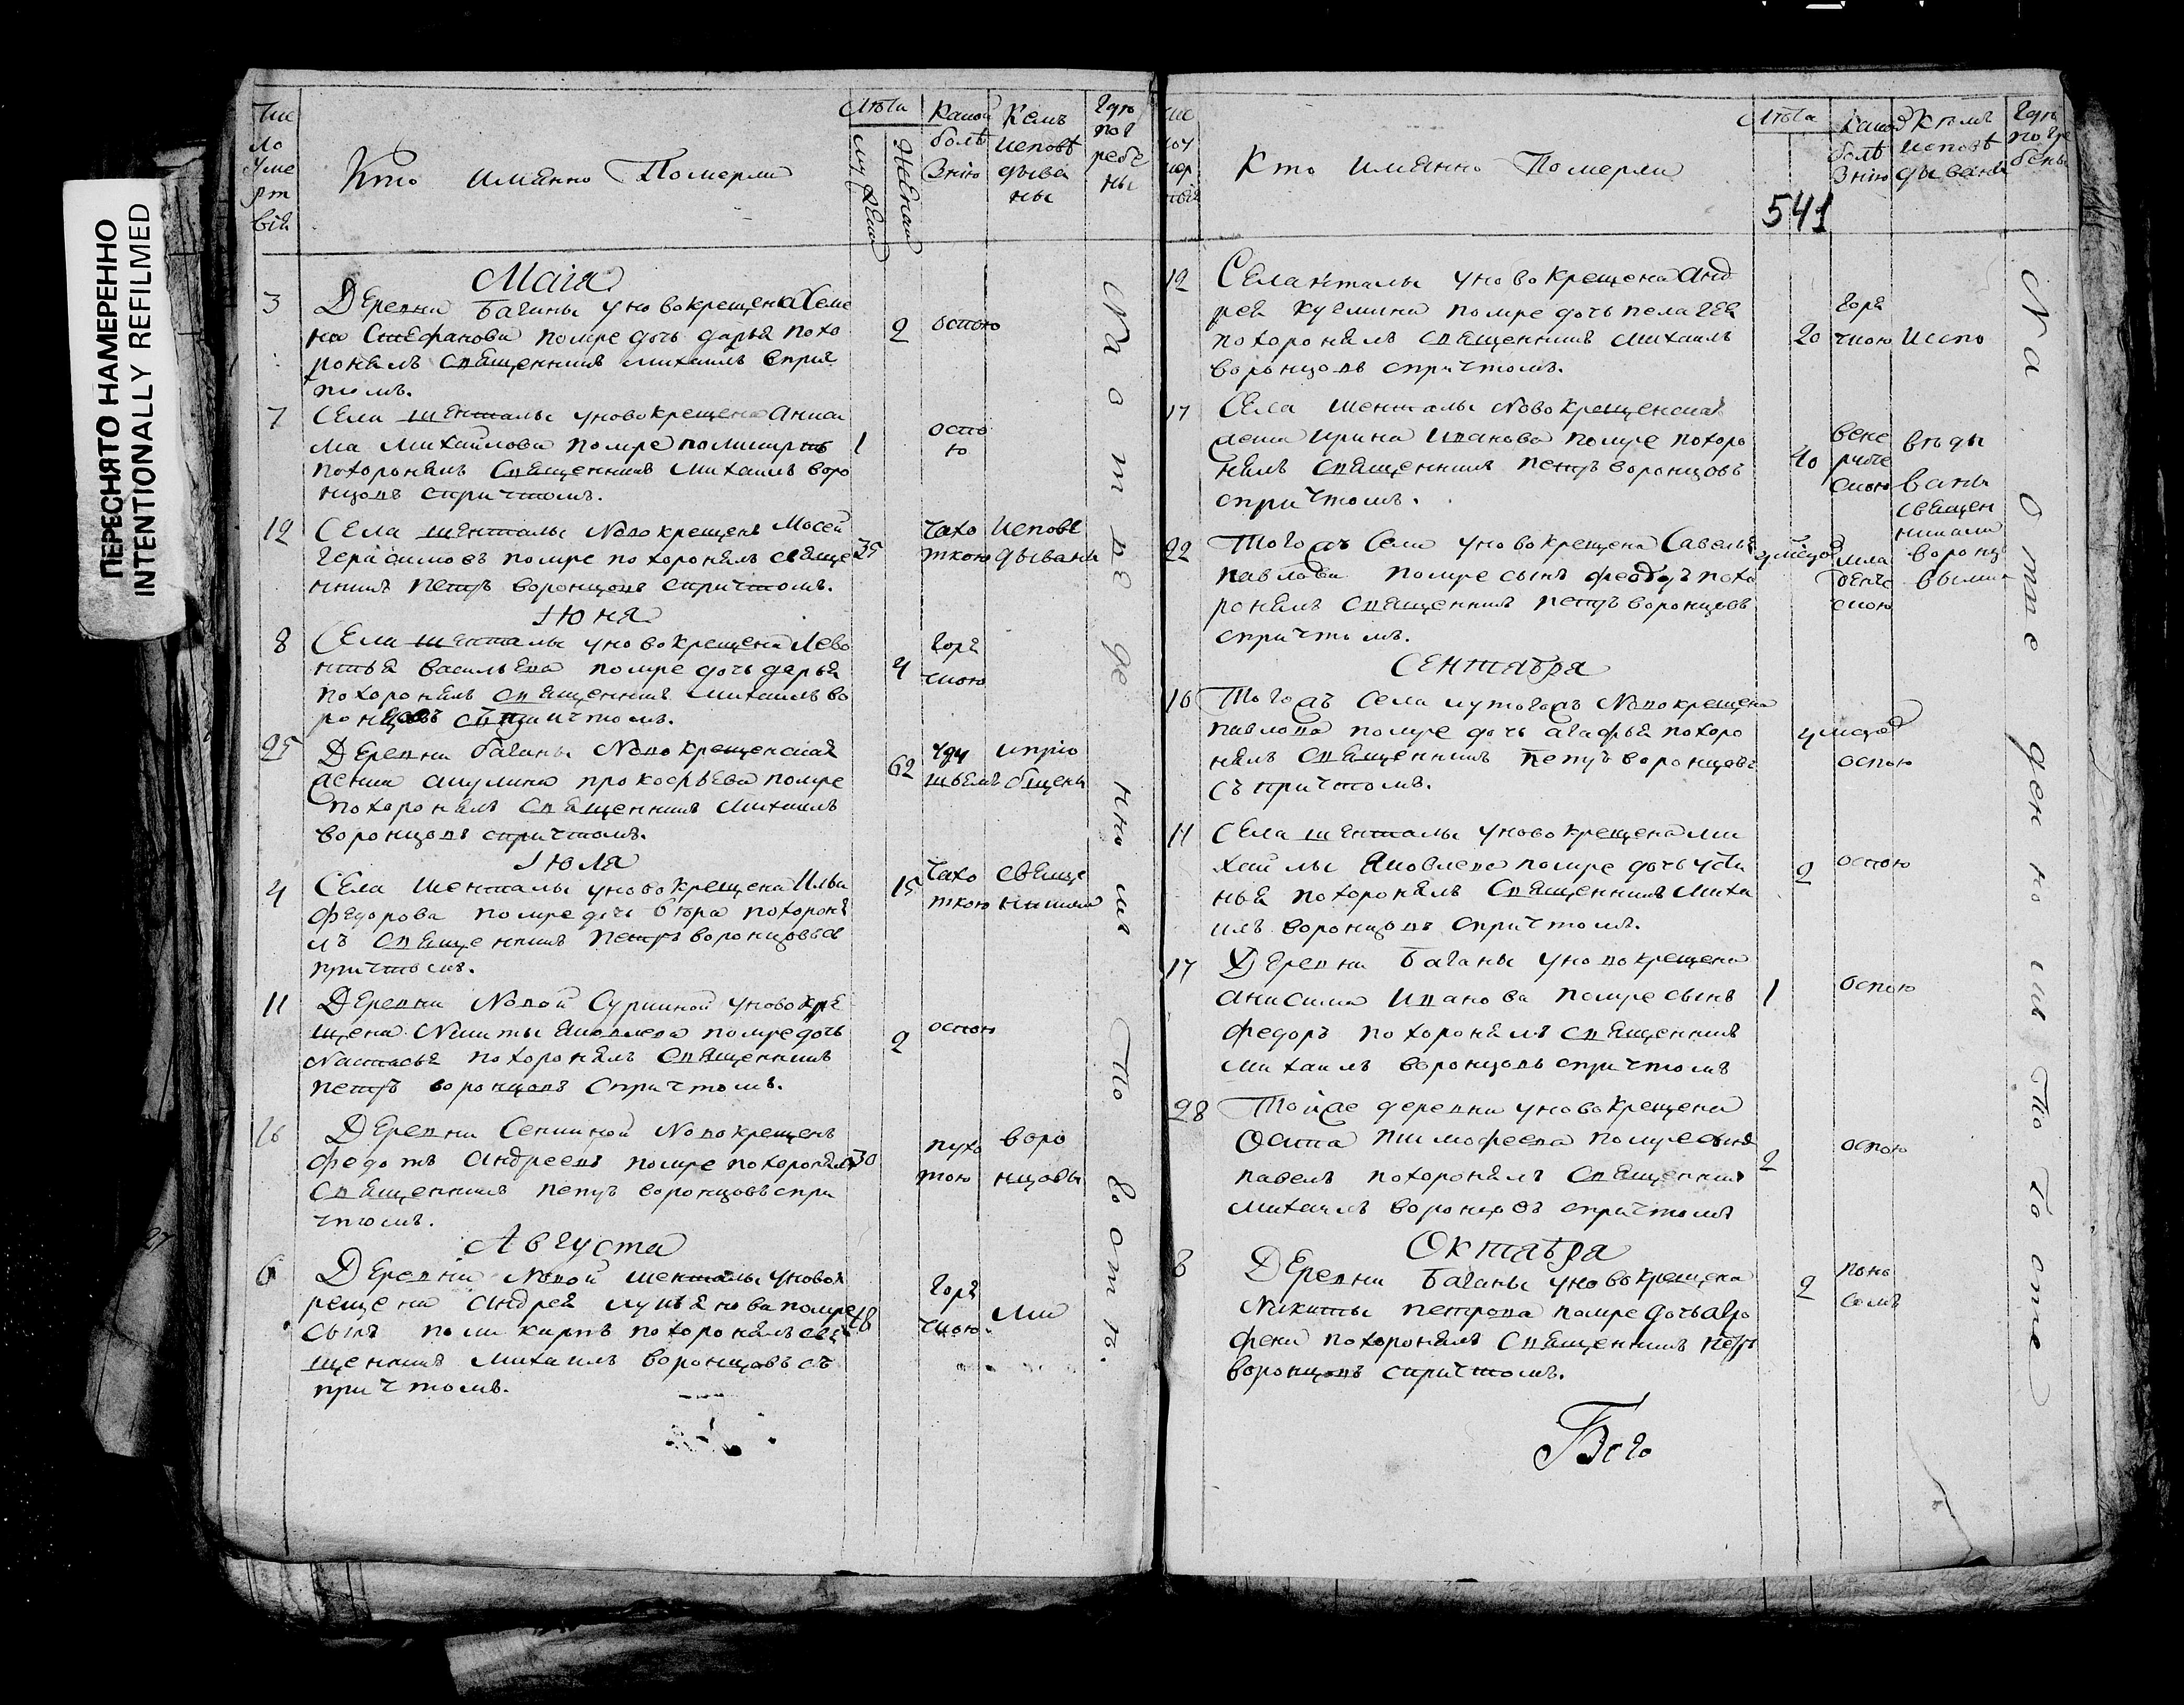 ПЕРЕСНЯТО НАМЕРЕННО
INTENTIONALLY REFILMED
Чис
ло
Уме
рт
вiя
Кто имянно Померли
Лѣта
мужеска
женска
Какой
болѣ
знiю
Кемъ
исповѣ
дыва
ны
Гдѣ
пог
ребе
ны
Маiя
3
Деревни Баганы у новокрещена Семе
на Стефанова помре дочь дарья похо
ронилъ священникъ михаилъ с при
томъ.
2
оспою
7
Села шенталы у новокрещена
ма михайлова помре
похоронилъ священникъ михаилъ воро
нцовъ с притчтомъ.
1
оспо
ю
12
Села шенталы новокрещенъ Мосей
герасимовъ помре похоронилъ свяще
нникъ петръ воронцовъ с причтомъ.
35
чахо
ткою
исповe
дываны
Iюня
8
Села шенталы у новокрещена лево
нтья васильева помре дочь дарья
похоронилъ священникъ михаилъ во
ронцовъ с причтомъ.
4
горя
чкою
25
Деревни баганы новокрещенская
женка акулина прокофьева помре
похоронилъ священникъ михаилъ
воронцовъ с причтомъ.
62
уду
шьемъ
и прiо
бщены
Iюля
4
Села шенталы у новокрещена Ильи
федорова помре дочь вѣра похорони
лъ священникъ петръ воронцовъ с
причтомъ.
15
чахо
ткою
свяще
нниками
11
Деревни Новой Суркиной у новокре
щена Никиты яковлева помре дочь
Настасья похоронилъ священникъ
петръ воронцовъ с причтомъ.
2
оспою
16
Деревни Сенькиной новокрещенъ
федотъ андреевъ помре похоронилъ
священникъ петръ воронцовъ с при
чтомъ.
30
пухо
тою
воро
нцовы
Августа
6
Деревни новой шенталы у новок
рещена андрея лукьянова помре
сынъ поликарпъ похоронилъ свя
щенникъ михаилъ воронцовъ съ
причтомъ.
18
горя
чкою.
ми
На отведенномъ по
Кто имянно Померли
Лѣта
541
Какой
болѣ
знiю
Кѣмъ
исповѣ
дываны
Гдѣ
погре
бены
12
Села шенталы у новокрещена анд
рея кузмина помре дочь пелагея
похоронилъ священникъ михаилъ
воронцовъ с причтомъ.
20
горя
чкою
испо
17
Села шенталы новокрещенская
женка ирина иванова помре похоро
нилъ священникъ петръ воронцовъ
с причтомъ.
40
вене
риче
скою
вѣды
ваны
священ
никами
воронц
выми
22
Того жъ Села у новокрещена Савелья
павлова помре сынъ феодоръ похо
ронилъ священникъ петръ воронцовъ
с причтомъ.
мла
денче
скою
Сентября
10
Того жъ села у того жъ новокрещена
павлова помре дочь агафья похоро
нилъ священникъ петръ воронцовъ
съ причтомъ.
оспою
11
Села шенталы у новокрещена ми
хайлы яковлева помре дочь усти
нья похоронилъ священникъ миха
илъ воронцовъ с причтомъ.
2
оспою
17
Деревни Баганы у новокрещена
анисима иванова помре сынъ
федоръ похоронилъ священникъ
михаилъ воронцовъ с причтомъ
1
оспою
28
Той же деревни у новокрещена
Осипа тимофеева помре сынъ
павелъ похоронилъ священникъ
михаилъ воронцовъ с причтомъ
2
оспою
Октября
8
Деревни Баганы у новокрещена
Никиты петрова помре дочь агро
фена похоронилъ священникъ петръ
воронцовъ с причтомъ.
2
поно
сомъ
Всего